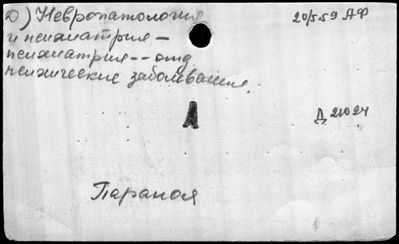 д) Невропатология 20/5.59 АФ
и психиатрия –
психиатрия -- отд
психические заболевания.
А
Д 21024
Параноя